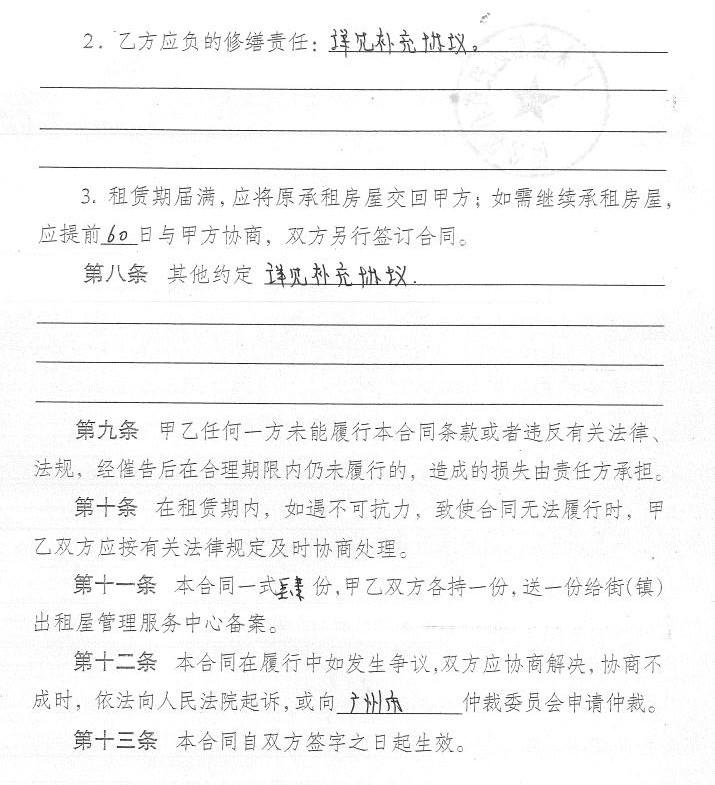 2. 乙方应负的修缮责任：详见补充协议。
3. 租赁期届满，应将原承租房屋交回甲方；如需继续承租房屋，
应提前60日与甲方协商，双方另行签订合同。
第八条 其他约定 详见补充协议.
第九条 甲乙任何一方未能履行本合同条款或者违反有关法律、
法规，经催告后在合理期限内仍未履行的，造成的损失由责任方承担。
第十条 在租赁期内，如遇不可抗力，致使合同无法履行时，甲
乙双方应按有关法律规定及时协商处理。
第十一条 本合同一式肆份，甲乙双方各持一份，送一份给街(镇)
出租屋管理服务中心备案。
第十二条 本合同在履行中如发生争议，双方应协商解决，协商不
成时，依法向人民法院起诉，或向 广州市 仲裁委员会申请仲裁。
第十三条 本合同自双方签字之日起生效。